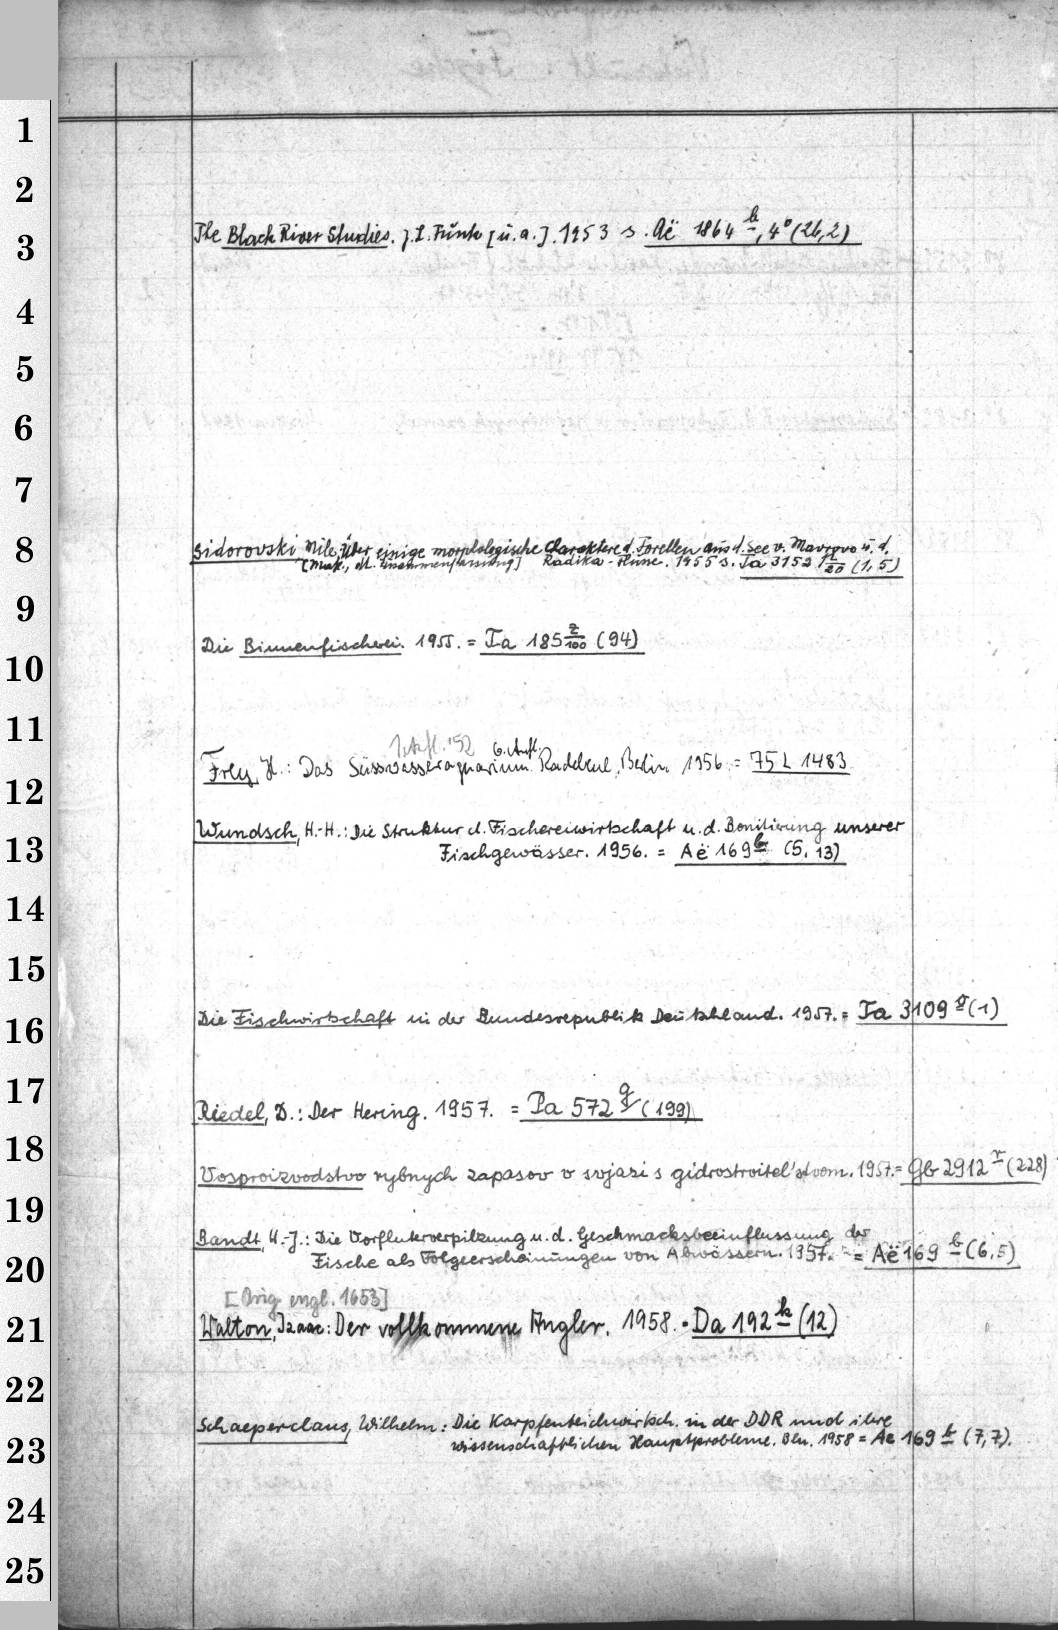 1
2
The Black River Studies. J. L. Funk [u. a.]. 1953 s. Aë 1864 b, 4° (26,2)
3
4
5
6
7
Sidorovski, Mile: Über einige morphologische Charaktere d. Forellen aus d. See v. Mavrovo u. d.
8
[Maz., dt. Zusammenfassung] Radika-Flusse. 1955 s. Ta 3152 1/20 (1,5)
9
Die Binnenfischerei. 1955. = Ta 185 z/100 (94)
10
11
1. Aufl. '52 6. Aufl.
Frey, H.: Das Süsswasseraquarium. Radebeul, Berlin 1956 = 75 L 1483
12
Wundsch, H.-H.: Die Struktur d. Fischereiwirtschaft u. d. Bonitierung unserer
13
Fischgewässer. 1956. = Aë 169 b (5, 13)
14
15
Die Fischwirtschaft in der Bundesrepublik Deutschland. 1957. = Ta 3109 g (1)
16
17
Riedel, D.: Der Hering. 1957. = Pa 572 g (199)
18
Vosproizvodstvo rybnych zapasov v svjazi s gidrostroitel'stvom. 1957. = Gb 2912 r (228)
19
Bandt, H.-J.: Die Vorfluterverpilzung u. d. Geschmacksbeeinflussung der
20
Fische als Folgeerscheinungen von Abwässern. 1957. = Aë 169 b (6,5)
[Orig. engl. 1653]
21
Walton, Izaac: Der vollkommene Angler. 1958. = Da 192 k (12)
22
Schaeperclaus, Wilhelm: Die Karpfenteichwirtsch. in der DDR und ihre
23
wissenschaftlichen Hauptprobleme. Bln. 1958 = Ae 169 b (7,7).
24
25